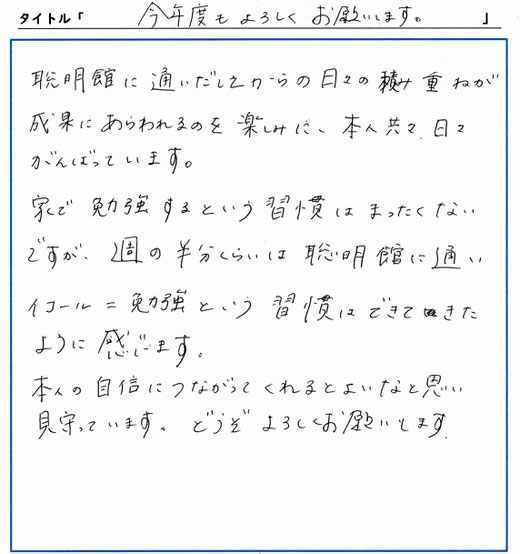 タイトル「 今年度もよろしくお願いします。 」
聡明館に通いだしてからの日々の積み重ねが
成果にあらわれるのを楽しみに、本人共々、日々
がんばっています。
家で勉強するという習慣はまったくない
ですが、週の半分くらいは聡明館に通い
イコール=勉強という習慣はできてきた
ように感じます。
本人の自信につながってくれるとよいなと思い
見守っています。どうぞよろしくお願いします。